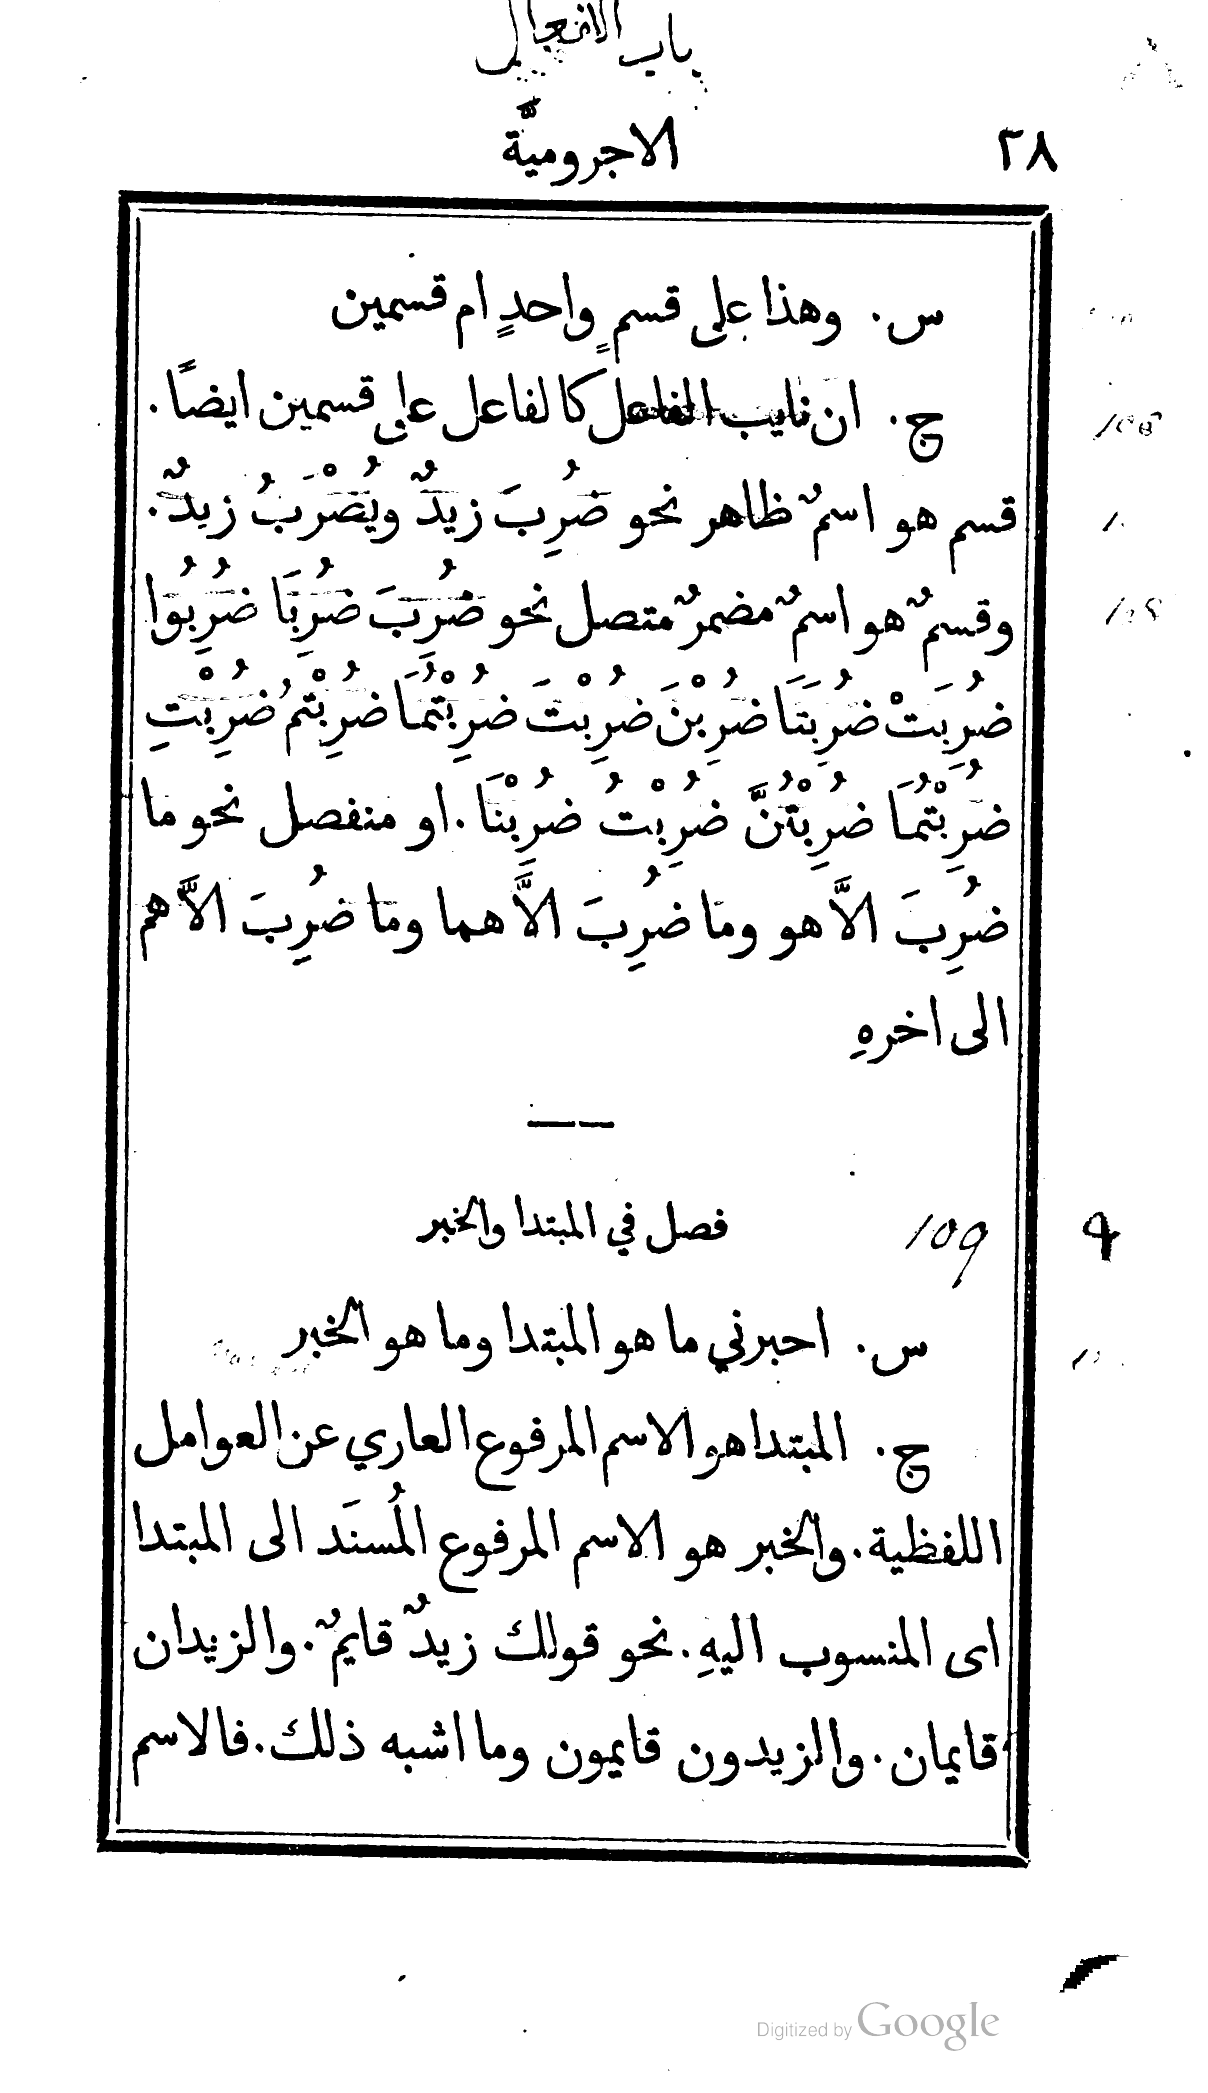 باب الافعال
٣٨ الاجروميَّة
س. وهذا على قسمٍ واحدٍ ام قسمين
ج. ان نايب الفاعل كالفاعل على قسمين ايضاً.
قسم هو اسمٌ ظاهر نحو ضُرِبَ زيدٌ ويُضْرَبُ زيدٌ.
وقسمٌ هو اسمٌ مضمرٌ متصل نحو ضُرِبَ ضُرِبَا ضُرِبُوا
ضُرِبَتْ ضُرِبَتَا ضُرِبْنَ ضُرِبْتَ ضُرِبْتُمَا ضُرِبْتُمْ ضُرِبْتِ
ضُرِبْتُمَا ضُرِبْتُنَّ ضُرِبْتُ ضُرِبْنَا. او منفصل نحو ما
ضُرِبَ الاَّ هو ومَا ضُرِبَ الاَّ هما ومَا ضُرِبَ الاَّ هم
الى اخرهِ
فصل في المبتدا والخبر
109 9
س. احبرني ما هو المبتدا وما هو الخبر
ج. المبتدا هو الاسم المرفوع العاري عن العوامل
اللفظية. والخبر هو الاسم المرفوع المُسنَد الى المبتدا
اى المنسوب اليهِ. نحو قولك زيدٌ قايمٌ. والزيدان
قايمان. والزيدون قايمون وما اشبه ذلك. فالاسم
Digitized by Google